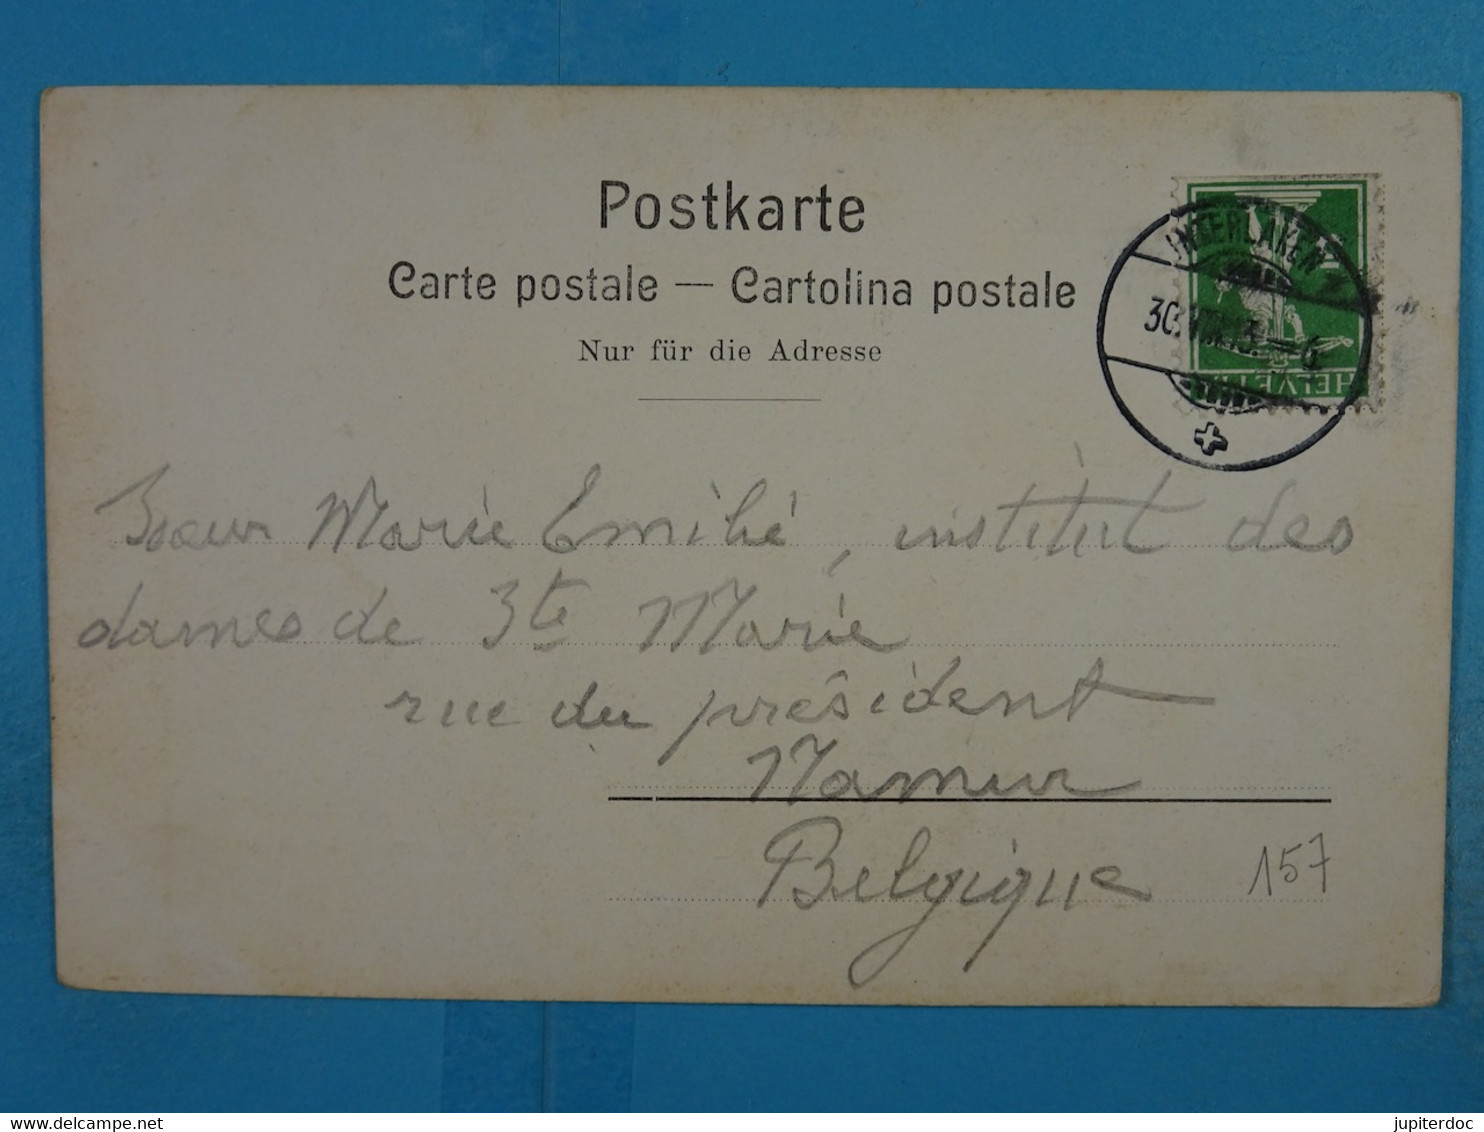 Postkarte
Carte postale — Cartolina postale
Nur für die Adresse
INTERLAKEN
30.VIII.13.—6
HELVETIA
Sœur Marie Emilie, institut des
dames de Ste Marie
rue du président
Namur
Belgique
157
www.delcampe.net
jupiterdoc